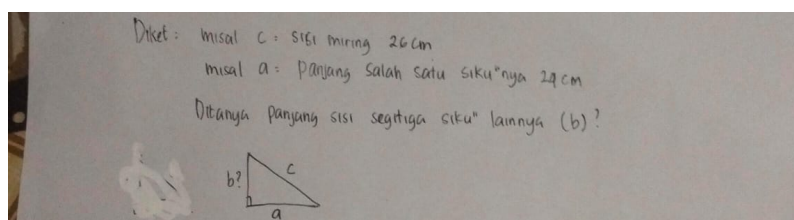 Diket : misal c : sisi miring 26 cm
misal a : panjang salah satu siku"nya 24 cm
Ditanya panjang sisi segitiga siku" lainnya (b) ?
b? c
a